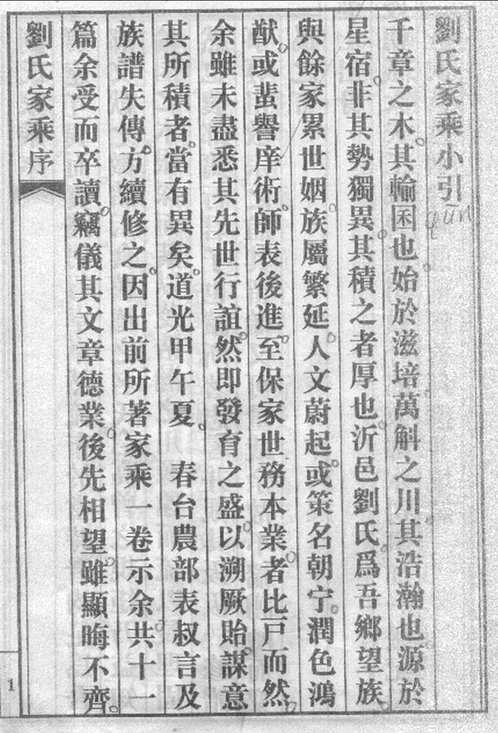 劉氏家乘小引
千章之木。其輪囷也。始於滋培。萬斛之川。其浩瀚也。源於
星宿。非其勢獨異。其積之者厚也。沂邑劉氏。爲吾鄉望族。
與餘家累世姻族。屬繁延。人文蔚起。或策名朝宁。潤色鴻
猷。或蜚譽庠術。師表後進。至保家世務本業者。比戸而然。
余雖未盡悉其先世行誼。然即發育之盛。以溯厥貽謀。意
其所積者。當有異矣。道光甲午夏。 春台農部表叔言及
族譜失傳。方續修之。因出前所著家乘一卷示余。共十一
篇余受而卒讀。竊儀其文章德業。後先相望。雖顯晦不齊。
劉氏家乘序
1